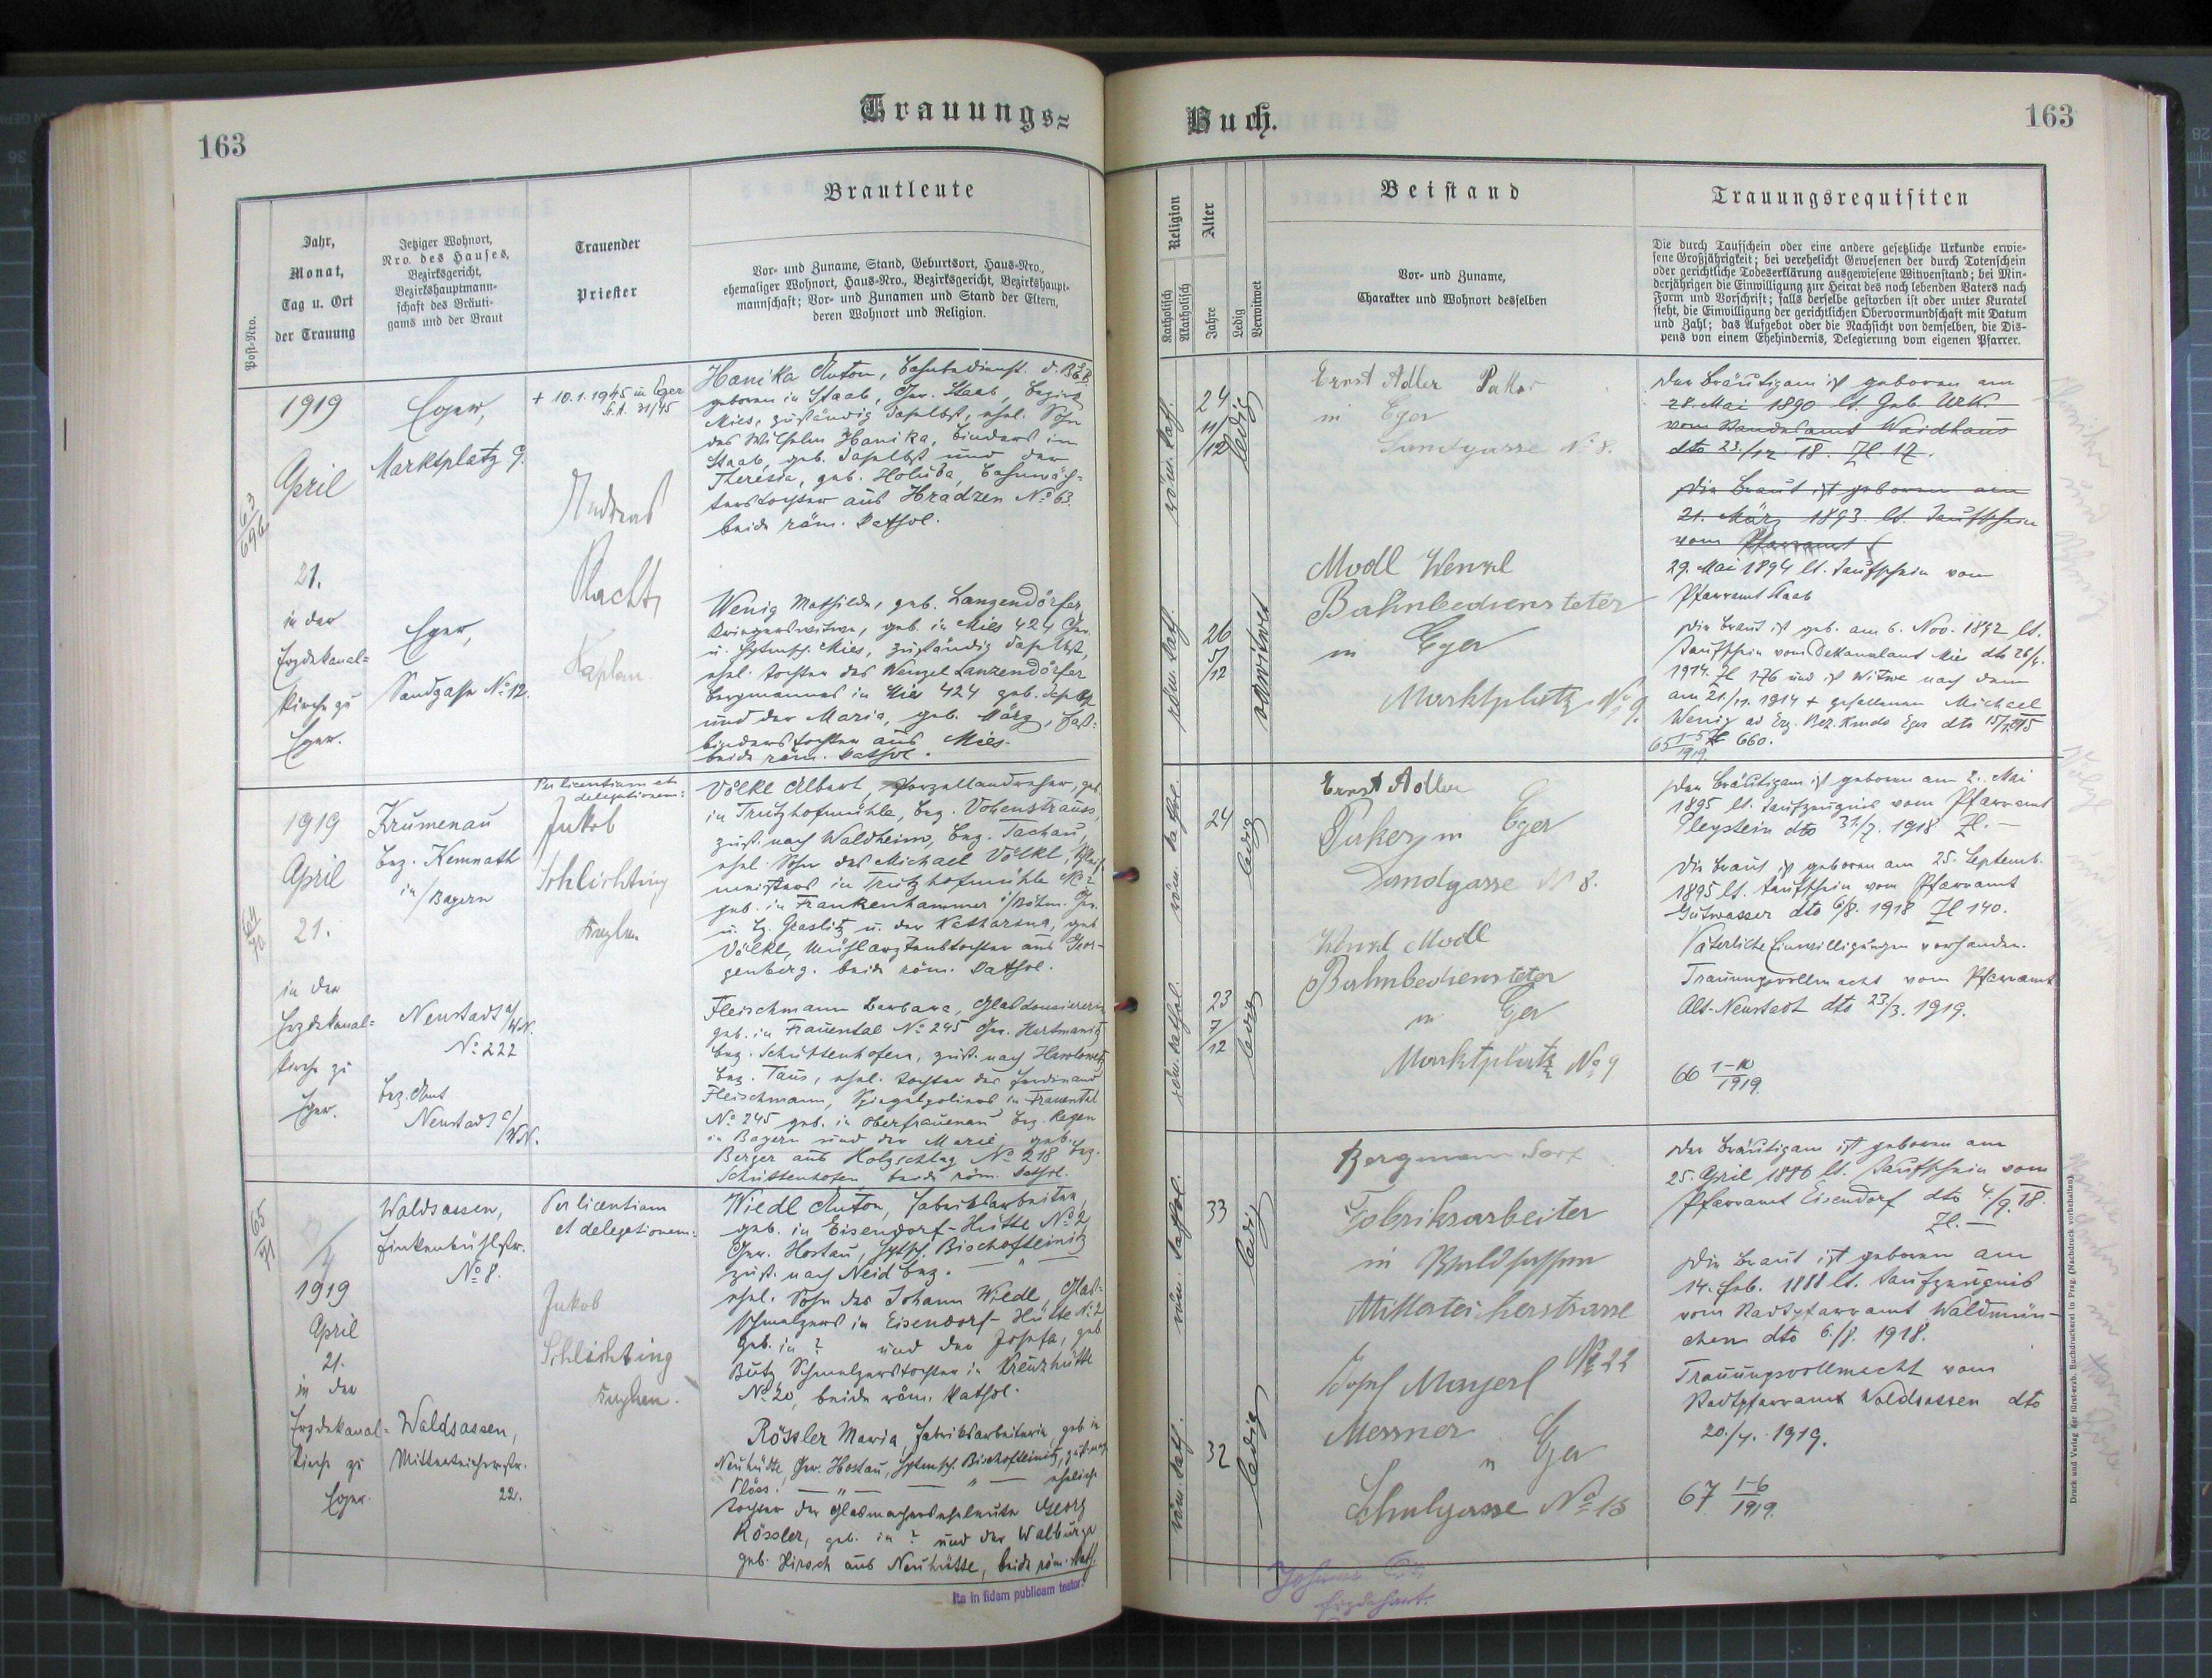 163
Trauungs=
Post-Nro.
Jahr,
Monat,
Tag u. Ort
der Trauung
Jetziger Wohnort,
Nro. des Hauses,
Bezirksgericht,
Bezirkshauptmann-
schaft des Bräuti-
gams und der Braut
Trauender
Priester
Brautleute
Vor- und Zuname, Stand, Geburtsort, Haus-Nro.,
ehemaliger Wohnort, Haus-Nro., Bezirksgericht, Bezirkshaupt-
mannschaft; Vor- und Zunamen und Stand der Eltern,
deren Wohnort und Religion.
63
1919
April
21.
in der
Erzdekanal=
kirche zu
Eger.
Eger,
Marktplatz 9.
Eger,
Sandgasse No 12.
+ 10.1.1945 in Eger
St.A. 31/45
Andreas
Kaplan
Hanika Anton, Bahnbedienst. d. B.E.B.
geboren in Staab, Ger. Staab, Bezirk
Mies, zuständig daselbst, ehel. Sohn
des Wilhelm Hanika, Binders in
Staab, geb. daselbst und der
Theresia, geb. Holuba, Bahnwäch-
terstochter aus Hradzen No 63.
beide röm. kathol.
Wenig Mathilde, geb. Lanzendörfer,
Kriegerswitwe, geb. in Mies 424 Ger.
u. Hptmsch. Mies, zuständig daselbst,
ehel. Tochter des Wenzel Lanzendörfer
Bergmannes in Mies 424 geb. daselbst
und der Maria, geb. März, Faß-
binderstochter aus Mies.
beide röm. kathol.
64
1919
April
21.
in der
Erzdekanal=
kirche zu
Eger.
Krumenau
Bez. Kemnath
in/Bayern
Neustadt a/
W.N.
No 222
Bez. Amt
Neustadt a/
W.N.
Per licentiam et
delegationem:
Jakob
Schlichting
Kaplan
Völkl Albert, Porzellandreher, geb.
in Trutzhofmühle, Bez. Vohenstrauss,
zust. nach Waldheim, Bez. Tachau,
ehel. Sohn des Michael Völkl,
meisters in Trutzhofmühle No 2
geb. in Frankenhammer i/Böhm. Ger.
u. Bz. Graslitz u. der Katharina, geb
Völkl, tochter aus Geor-
genberg. beide röm. kathol.
Fleischmann Barbara,
geb. in Frauental No 245 Ger. Hartmanitz
Bez. Schüttenhofen, zust. nach
Bez. Taus, ehel. Tochter des Ferdinand
Fleischmann, Spiegelpolierers in Frauental
No 245 geb. in Oberfrauenau Bez. Regen
in Bayern und der Marie, geb.
Berger aus Holzschlag No 218 Bez.
Schüttenhofen beide röm. kathol.
65
71
1919
April
21.
in der
Erzdekanal=
kirche zu
Eger.
Waldsassen,
Finkenbühlstr.
No 8.
Waldsassen,
Mitterteicherstr.
22.
Per licentiam
et delegationem:
Jakob
Schlichting
Kaplan.
Wiedl Anton, Fabriksarbeiter,
geb. in Eisendorf-Hütte No 2,
Ger. Hostau, Hptsch. Bischofteinitz
zust. nach Neid Bez. — " —
ehel. Sohn des Johann Wiedl, Glas-
schmelzers in Eisendorf-Hütte No 2
geb. in ? und der Josefa, geb.
Butz Schmelzerstochter in Kreuzhütte
No 20, beide röm. kathol.
Rössler Maria, Fabriksarbeiterin, geb. in
Neuhütte, Ger. Hostau, Hptmsch. Bischofteinitz, zust. nach
Plöss. — " — — " — eheliche
Tochter der Glasmacherseheleute Georg
Rössler, geb. in ? und der Walburga
geb. Hirsch aus Neuhütte, beide röm. kath.
Ita in fidem publicam testor:
Buch.
163
Religion
Katholisch
Akatholisch
Alter
Jahre
Ledig
Verwitwet
Beistand
Vor- und Zuname,
Charakter und Wohnort desselben
Trauungsrequisiten
Die durch Taufschein oder eine andere gesetzliche Urkunde erwie-
sene Großjährigkeit; bei verehelicht Gewesenen der durch Totenschein
oder gerichtliche Todeserklärung ausgewiesene Witwenstand; bei Min-
derjährigen die Einwilligung zur Heirat des noch lebenden Vaters nach
Form und Vorschrift; falls derselbe gestorben ist oder unter Kuratel
steht, die Einwilligung der gerichtlichen Obervormundschaft mit Datum
und Zahl; das Aufgebot oder die Nachsicht von demselben, die Dis-
pens von einem Ehehindernis, Delegierung vom eigenen Pfarrer.
röm. kath.
24
11/
12
ledig
röm. kath.
26
5/
12
verwitwet
Ernst Adler
in Eger
Sandgasse No 8.
Modl Wenzl
Bahnbediensteter
in Eger
Marktplatz No 9.
Der Bräutigam ist geboren am
28. Mai 1890 lt. Geb. Urk.
vom Standesamt Waidhaus
dto 23./12. 18. Zl. 17.
Die Braut ist geboren am
21. März 1893. lt. Taufschein
vom Pfarramt
29. Mai 1894 lt. Taufschein vom
Pfarramt Staab
Die Braut ist geb. am 6. Nov. 1892 lt.
Taufschein vom Dekanalamt Mies dto 26/4.
1914. Zl 176 und ist Witwe nach dem
am 21./11. 1914 + gefallenen Michael
Wenig Erg. Bez. Kmdo Eger dto
Zl 660.
65 1-5
1919
röm. kathol.
24
ledig
röm. kathol.
23
7/
12
ledig
Ernst Adler
in Eger
Sandgasse No 8.
Wenzl Modl
Bahnbediensteter
in Eger
Marktplatz No 9
Der Bräutigam ist geboren am 2. Mai
1895 lt. Taufzeugnis vom Pfarramt
Pleystein dto 31./7. 1918 Zl. —
Die Braut ist geboren am 25. Septemb.
1895 lt. Taufschein vom Pfarramt
Gutwasser dto 6/8. 1918 Zl 140.
Väterliche Einwilligungen vorhanden.
Trauungsvollmacht vom Pfarramt
Alt-Neustadt dto 23./3. 1919.
66 1-10
1919.
röm. kathol.
33
ledig
röm. kath.
32
ledig
Bergmann
Fabriksarbeiter
in Waldsassen
Mitterteicherstrasse
No 22
Josef Mayerl
Messner
in Eger
Schulgasse No 13
Der Bräutigam ist geboren am
25. April 1886 lt. Taufschein vom
Pfarramt Eisendorf dto 4./9. 18.
Zl. —
Die Braut ist geboren am
14. Feb. 1888 lt. Taufzeugnis
vom Stadtpfarramt Waldmün-
chen dto 6./8. 1918.
Trauungsvollmacht vom
Stadtpfarramt Waldsassen dto
20./4. 1919.
67 1-6
1919.
Erzdechant.
Druck und Verlag der fürst-erzb. Buchdruckerei in Prag. (Nachdruck vorbehalten.)